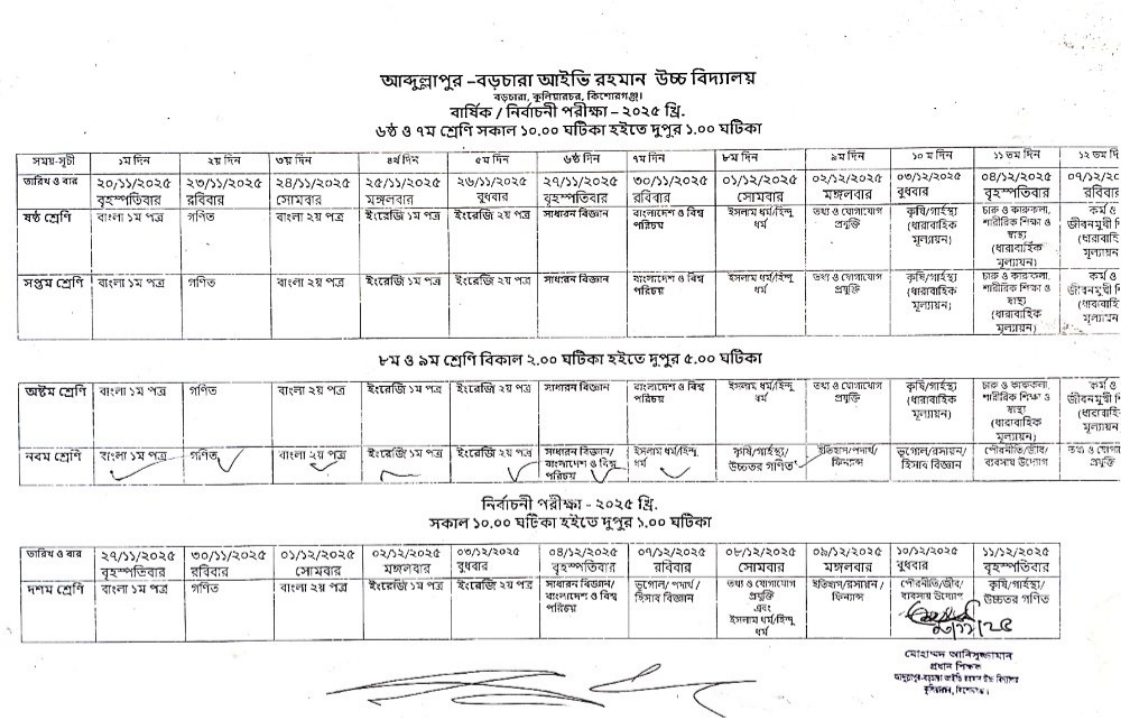 আব্দুল্লাপুর –বড়চারা আইভি রহমান উচ্চ বিদ্যালয়
বড়চারা, কুলিয়ারচর, কিশোরগঞ্জ।
বার্ষিক / নির্বাচনী পরীক্ষা – ২০২৫ খ্রি.
৬ষ্ঠ ও ৭ম শ্রেণি সকাল ১০.০০ ঘটিকা হইতে দুপুর ১.০০ ঘটিকা
সময়-সূচী ১ম দিন ২য় দিন ৩য় দিন ৪র্থ দিন ৫ম দিন ৬ষ্ঠ দিন ৭ম দিন ৮ম দিন ৯ম দিন ১০ ম দিন ১১ তম দিন ১২ তম দি
তারিখ ও বার ২০/১১/২০২৫ ২৩/১১/২০২৫ ২৪/১১/২০২৫ ২৫/১১/২০২৫ ২৬/১১/২০২৫ ২৭/১১/২০২৫ ৩০/১১/২০২৫ ০১/১২/২০২৫ ০২/১২/২০২৫ ০৩/১২/২০২৫ ০৪/১২/২০২৫ ০৭/১২/২০
বৃহস্পতিবার রবিবার সোমবার মঙ্গলবার বুধবার বৃহস্পতিবার রবিবার সোমবার মঙ্গলবার বুধবার বৃহস্পতিবার রবিবার
ষষ্ঠ শ্রেণি বাংলা ১ম পত্র গণিত বাংলা ২য় পত্র ইংরেজি ১ম পত্র ইংরেজি ২য় পত্র সাধারন বিজ্ঞান বাংলাদেশ ও বিশ্ব ইসলাম ধর্ম/হিন্দু তথ্য ও যোগাযোগ কৃষি/গার্হস্থ্য চারু ও কারুকলা, কর্ম ও
পরিচয় ধর্ম প্রযুক্তি (ধারাবাহিক শারীরিক শিক্ষা ও জীবনমুখী শি
মূল্যায়ন) স্বাস্থ্য (ধারাবাহি
(ধারাবাহিক মূল্যায়ন
মূল্যায়ন)
সপ্তম শ্রেণি বাংলা ১ম পত্র গণিত বাংলা ২য় পত্র ইংরেজি ১ম পত্র ইংরেজি ২য় পত্র সাধারন বিজ্ঞান বাংলাদেশ ও বিশ্ব ইসলাম ধর্ম/হিন্দু তথ্য ও যোগাযোগ কৃষি/গার্হস্থ্য চারু ও কারুকলা, কর্ম ও
পরিচয় ধর্ম প্রযুক্তি (ধারাবাহিক শারীরিক শিক্ষা ও জীবনমুখী শি
মূল্যায়ন) স্বাস্থ্য (ধারাবাহি
(ধারাবাহিক মূল্যায়ন
মূল্যায়ন)
৮ম ও ৯ম শ্রেণি বিকাল ২.০০ ঘটিকা হইতে দুপুর ৫.০০ ঘটিকা
অষ্টম শ্রেণি বাংলা ১ম পত্র গণিত বাংলা ২য় পত্র ইংরেজি ১ম পত্র ইংরেজি ২য় পত্র সাধারন বিজ্ঞান বাংলাদেশ ও বিশ্ব ইসলাম ধর্ম/হিন্দু তথ্য ও যোগাযোগ কৃষি/গার্হস্থ্য চারু ও কারুকলা, কর্ম ও
পরিচয় ধর্ম প্রযুক্তি (ধারাবাহিক শারীরিক শিক্ষা ও জীবনমুখী শি
মূল্যায়ন) স্বাস্থ্য (ধারাবাহি
(ধারাবাহিক মূল্যায়ন
মূল্যায়ন)
নবম শ্রেণি বাংলা ১ম পত্র গণিত বাংলা ২য় পত্র ইংরেজি ১ম পত্র ইংরেজি ২য় পত্র সাধারন বিজ্ঞান/ ইসলাম ধর্ম/হিন্দু কৃষি/গার্হস্থ্য/ ইতিহাস/পদার্থ/ ভূগোল/রসায়ন/ পৌরনীতি/জীব/ তথ্য ও যোগা
বাংলাদেশ ও বিশ্ব ধর্ম উচ্চতর গণিত ফিন্যান্স হিসাব বিজ্ঞান ব্যবসায় উদ্যোগ প্রযুক্তি
পরিচয়
নির্বাচনী পরীক্ষা - ২০২৫ খ্রি.
সকাল ১০.০০ ঘটিকা হইতে দুপুর ১.০০ ঘটিকা
তারিখ ও বার ২৭/১১/২০২৫ ৩০/১১/২০২৫ ০১/১২/২০২৫ ০২/১২/২০২৫ ০৩/১২/২০২৫ ০৪/১২/২০২৫ ০৭/১২/২০২৫ ০৮/১২/২০২৫ ০৯/১২/২০২৫ ১০/১২/২০২৫ ১১/১২/২০২৫
বৃহস্পতিবার রবিবার সোমবার মঙ্গলবার বুধবার বৃহস্পতিবার রবিবার সোমবার মঙ্গলবার বুধবার বৃহস্পতিবার
দশম শ্রেণি বাংলা ১ম পত্র গণিত বাংলা ২য় পত্র ইংরেজি ১ম পত্র ইংরেজি ২য় পত্র সাধারন বিজ্ঞান/ ভূগোল/ পদার্থ/ তথ্য ও যোগাযোগ ইতিহাস/রসায়ন/ পৌরনীতি/জীব/ কৃষি/গার্হস্থ্য/
বাংলাদেশ ও বিশ্ব হিসাব বিজ্ঞান প্রযুক্তি ফিন্যান্স ব্যবসায় উদ্যোগ উচ্চতর গণিত
পরিচয় এবং
ইসলাম ধর্ম/হিন্দু
ধর্ম
মোহাম্মদ আনিসুজ্জামান
প্রধান শিক্ষক